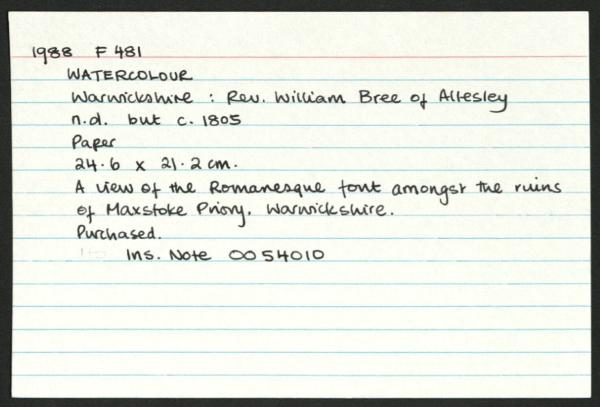 1988 F 481
WATERCOLOUR
Warwickshire : Rev. William Bree of Allesley
n.d. but c. 1805
Paper
24.6 x 21.2 cm.
A view of the Romanesque font amongst the ruins
of Maxstoke Priory, Warwickshire.
Purchased.
Ins. Note 0054010